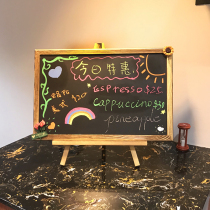 今日特惠
Espresso$25
$20
Cappuccino$30
pineapple